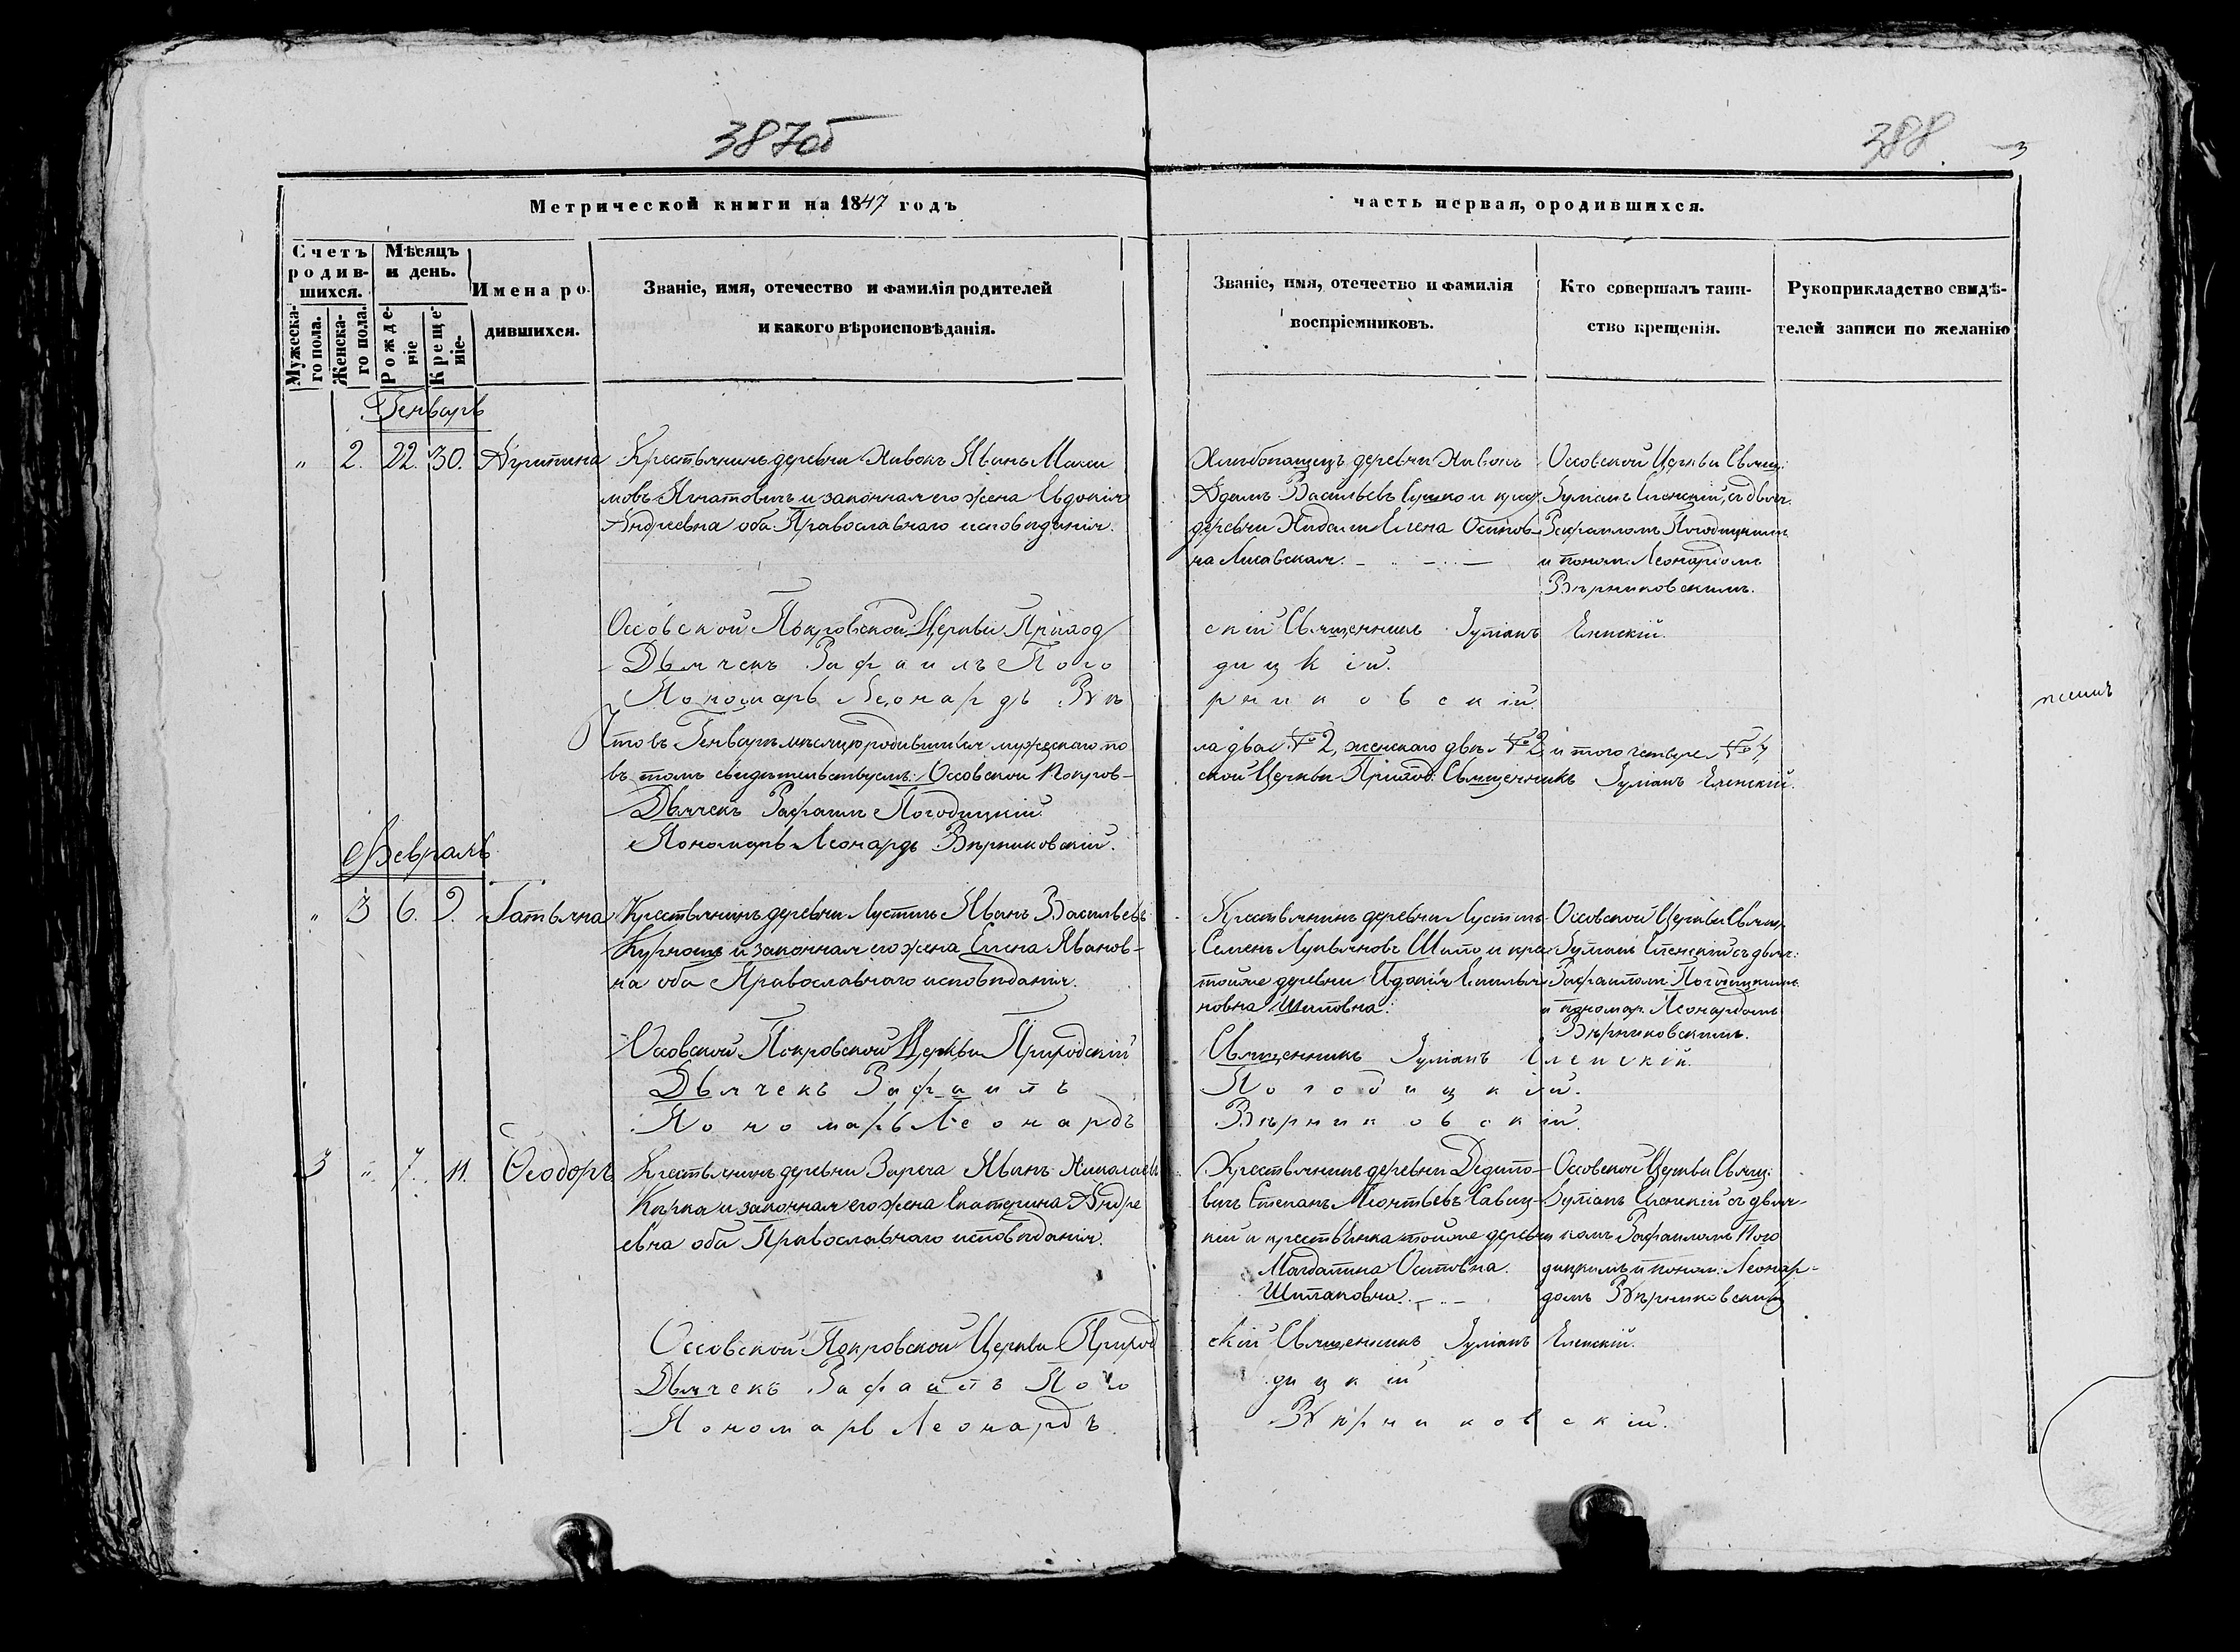 387об
388
3
Метрической книги на 1847 годъ
часть первая, о родившихся.
Счетъ родив-шихся.
Мужеска-го пола.
Женска-го пола.
Мѣсяцъ и день.
Рожде-ніе
Креще-ніе.
Имена ро-
дившихся.
Званіе, имя, отечество и фамилія родителей
и какого вѣроисповѣданія.
Званіе, имя, отечество и фамилія
воспріемниковъ.
Кто совершалъ таин-
ство крещенія.
Рукоприкладство свидѣ-
телей записи по желанію
Генварь
" 2. 22. 30.
Крестьянинъ деревни Хивокъ Иванъ Макси
мовъ Игнатовичъ и законная его жена Евдокія
Андреевна оба Православнаго исповѣданія.
Хлѣбопашецъ деревни Хивокъ
Адамъ Васильевъ Сушко и крес
деревни Елена Осипов-
на Лисовская.
Оссовской Церкви Свящ:
Іуліанъ Еленскій, съ дьяч.
Рафаиломъ Погодицкимъ
и поном: Леонардомъ
Вѣрниковскимъ.
Оссовской Покровской Церкви Приход
скій Священникъ Іуліанъ Еленскій.
Дьячекъ Рафаилъ Пого
дицкій.
Пономарь Леонардъ Вѣ
рниковскій.
Что въ Генварѣ мѣсяцѣ родившихся мужескаго по
ла два № 2, женскаго двѣ № 2, и того четыре № 4,
въ томъ свидѣтельствуемъ: Оссовской Покров-
ской Церкви Приход: Священникъ Іуліанъ Еленскій.
Дьячекъ Рафаилъ Погодицкій.
Пономарь Леонардъ Вѣрниковскій.
Февраль
" 3 6. 9. Татьяна
Крестьянинъ деревни Лустинъ Иванъ Васильевъ
и законная его жена Елена Иванов-
на оба Православнаго исповѣданія.
Крестьянинъ деревни Лустинъ
Семенъ Лукьяновъ Шило, и кре
тойже деревни Евдокія Емилья
новна Шиловна.
Оссовской Церкви Свящ.
Іуліанъ Еленскій съ дьяч:
Рафаиломъ Погодицкимъ
и пономар. Леонардомъ
Вѣрниковскимъ.
Оссовской Покровской Церкви Приходскій
Священникъ Іуліанъ Еленскій.
Дьячекъ Рафаилъ
Погодицкій.
Пономарь Леонардъ
Вѣрниковскій.
3 " 7. 11. Ѳеодоръ
Крестьянинъ деревни Зареча Иванъ Николаевъ
Кирка и законная его жена Екатерина Андре
евна оба Православнаго исповѣданія.
Крестьянинъ деревни Дедило-
вичъ Степанъ Леонтьевъ Савиц-
кій и крестьянка тойже деревни
Магдалина Осиповна
Шиланковна.
Оссовской Церкви Свящ:
Іуліанъ Еленскій съ дьяч-
комъ Рафаиломъ Пого
дицкимъ и поном: Леонар-
домъ Вѣрниковским
Оссовской Покровской Церкви Приход
скій Священникъ Іуліанъ Еленскій.
Дьячекъ Рафаилъ Пого
дицкій
Пономарь Леонардъ
Вѣрниковскій.